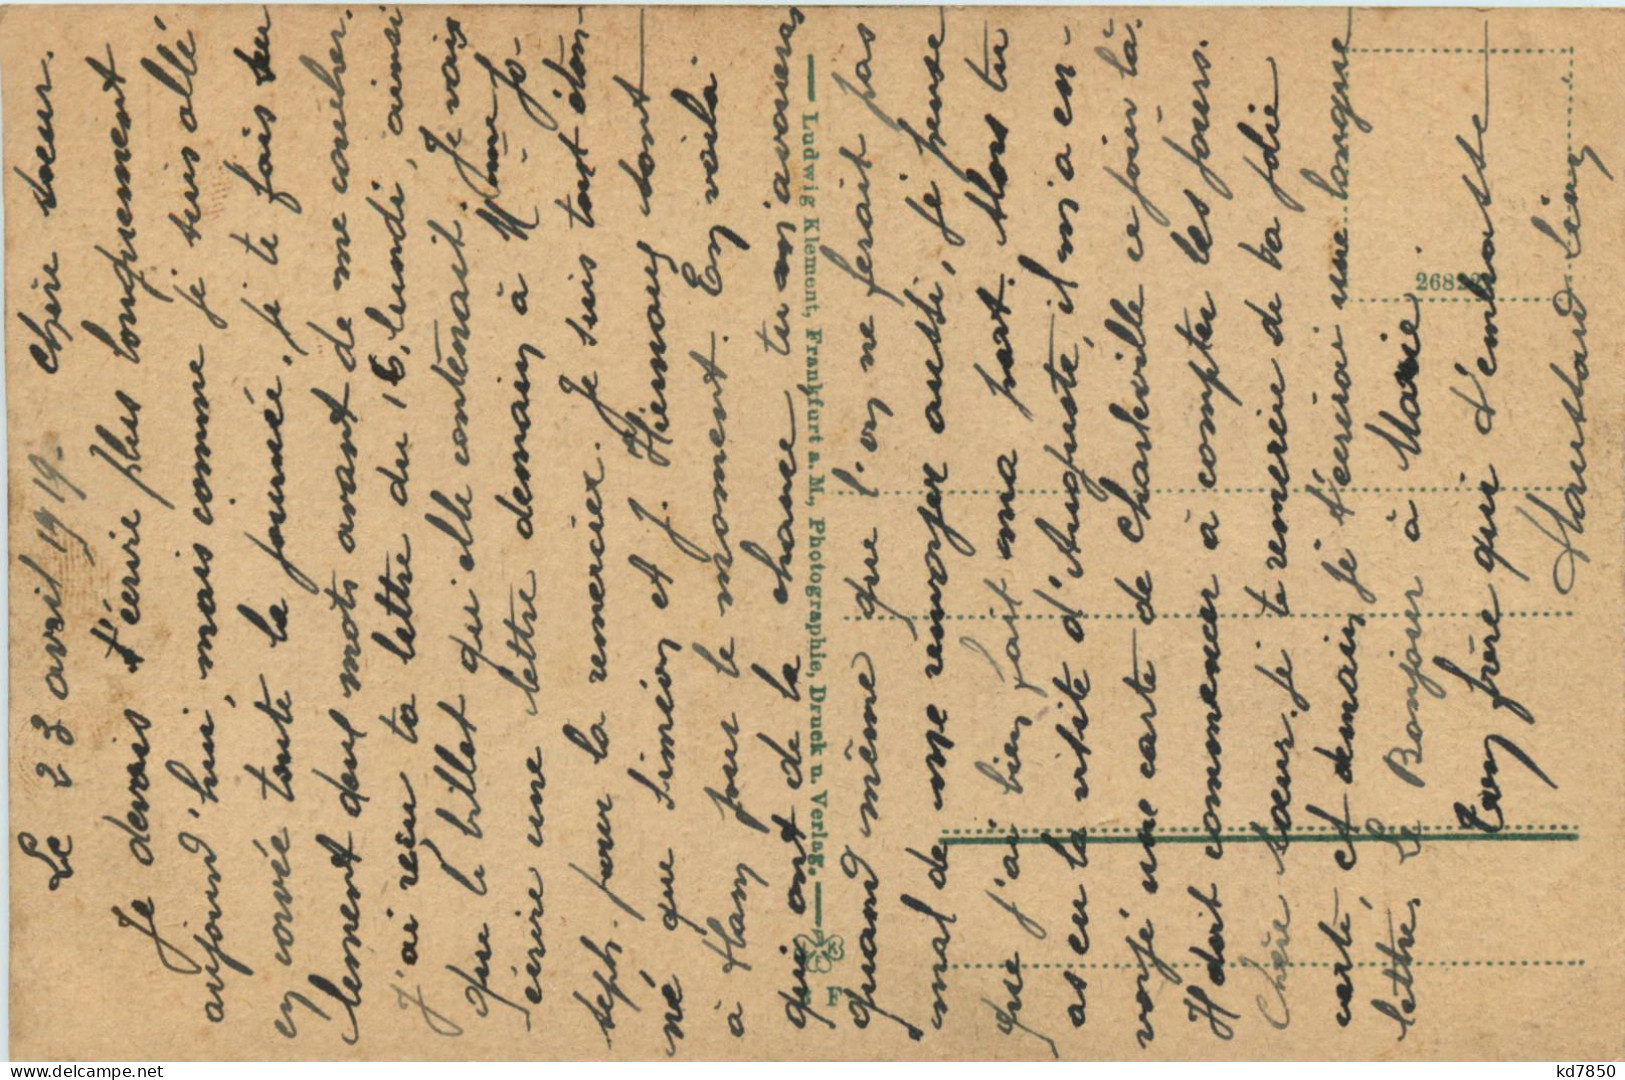 Le 23 avril 1919. Chère soeur.
Je devais t'écrire plus longuement
aujourd'hui, mais comme je suis allé
en corvée toute la journée, je te fais seu
lement deux mots avant de me coucher.
J'ai reçu ta lettre du 16, lundi, ainsi
que le billet qu'elle contenait. Je vais
écrire une lettre demain à Mme Jo-
seph. pour la remercier. Je suis tout éton-
né que Siméon et J. Hiernaux sont
à Ham pour le moment. En voila
qui ont de la chance tu m'avoueras
quand même que l'on ne ferait pas
mal de me renvoyer aussi, je pense
que j'ai bien fait ma part. Alors tu
as eu la visite d'Auguste, il m'a en-
voyé une carte de Charleville ce jour là.
Il doit commencer à compter les jours.
Chère soeur. Je te remercie de ta jolie
carte et demain je t'écrirai une longue
lettre. Le Bonjour à Marie
Ton frère qui t'embrasse
Léon
Ludwig Klement, Frankfurt a. M., Photographie, Druck u. Verlag.
E
kd7850